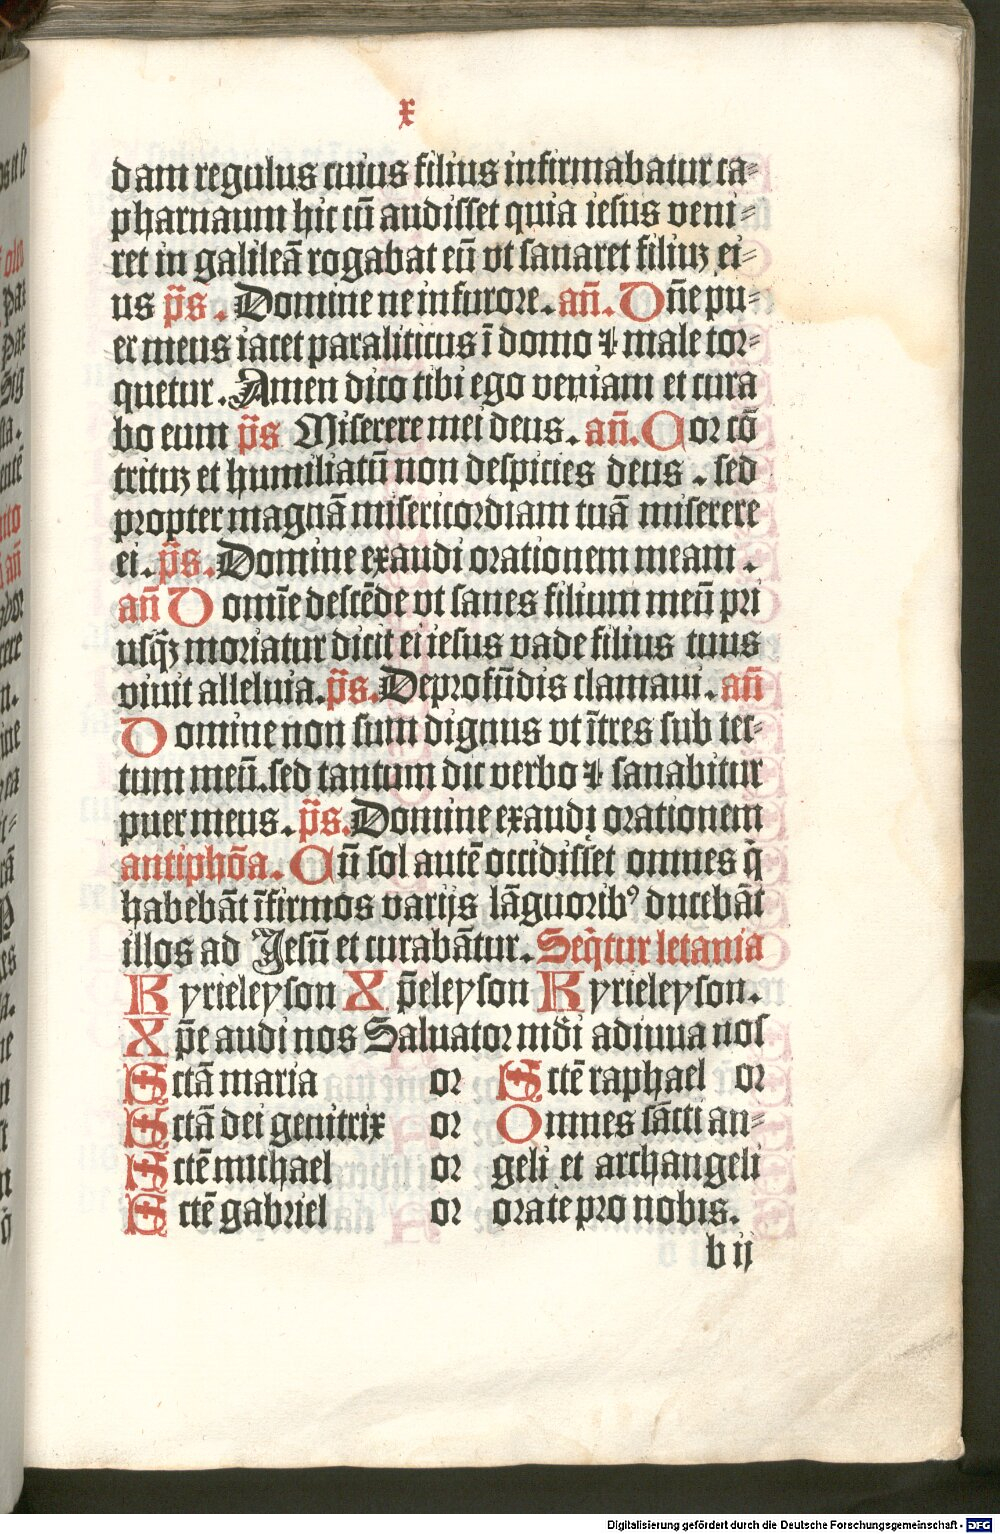 x
dam regulus cuius filius infirmabatur ca⸗
pharnaum hic cū audisset quia iesus veni⸗
ret in galileā rogabat eū vt sanaret filiuʒ ei⸗
us p̄s. Domine ne in furore. añ. Dñe pu⸗
er meus iacet paraliticus ī domo ⁊ male tor⸗
quetur. Amen dico tibi ego veniam et cura
bo eum p̄s Miserere mei deus. añ. Cor cō
trituʒ et humiliatū non despicies deus. sed
propter magnā misericordiam tuā miserere
ei. p̄s. Domine exaudi orationem meam.
añ Domīe descēde vt sanes filium meū pri
usq̄ʒ moriatur dicit ei iesus vade filius tuus
viuit alleluia. p̄s. De profūdis clamaui. añ
Domine non sum dignus vt ītres sub tec⸗
tum meū. sed tantum dic verbo ⁊ sanabitur
puer meus. p̄s. Domine exaudi orationem
antiphōa. Cū sol autē occidisset omnes q̇
habebāt īfirmos varijs lāguoribꝰ ducebāt
illos ad Jesū et curabātur. Seq̇tur letania
Kyrieleyson Xp̄eleyson Kyrieleyson.
Xp̄e audi nos Saluator mūdi adiuua nos
Sctā maria or Sctē raphael or
Sctā dei genitrix or Omnes sācti an⸗
Sctē michael or geli et archangeli
Sctē gabriel or orate pro nobis.
b ij
Digitalisierung gefördert durch die Deutsche Forschungsgemeinschaft - DFG